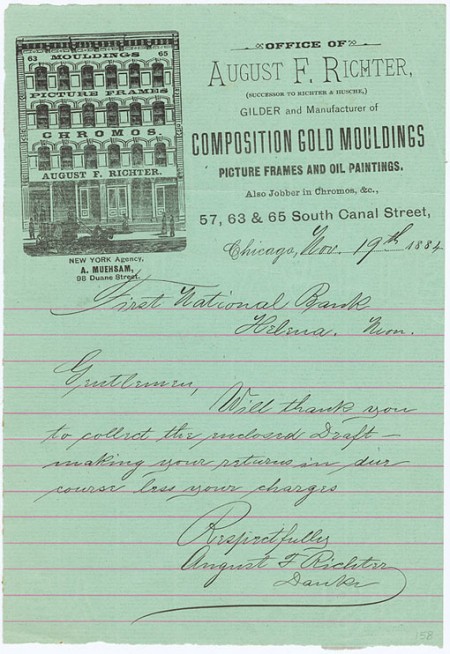 63 MOULDINGS 65
PICTURE FRAMES
CHROMOS.
AUGUST F. RICHTER.
NEW YORK Agency,
A. MUEHSAM,
98 Duane Street.
OFFICE OF
AUGUST F. RICHTER,
(SUCCESSOR TO RICHTER & HUSCHE,)
GILDER and Manufacturer of
COMPOSITION GOLD MOULDINGS
PICTURE FRAMES AND OIL PAINTINGS.
Also Jobber in Chromos, &c.,
57, 63 & 65 South Canal Street,
Chicago, Nov. 19th 1884
First National Bank
Helena. Mon.
Gentlemen,
Will thank you
to collect the enclosed Draft —
making your returns in due
course less your charges
Respectfully
August F Richter
158